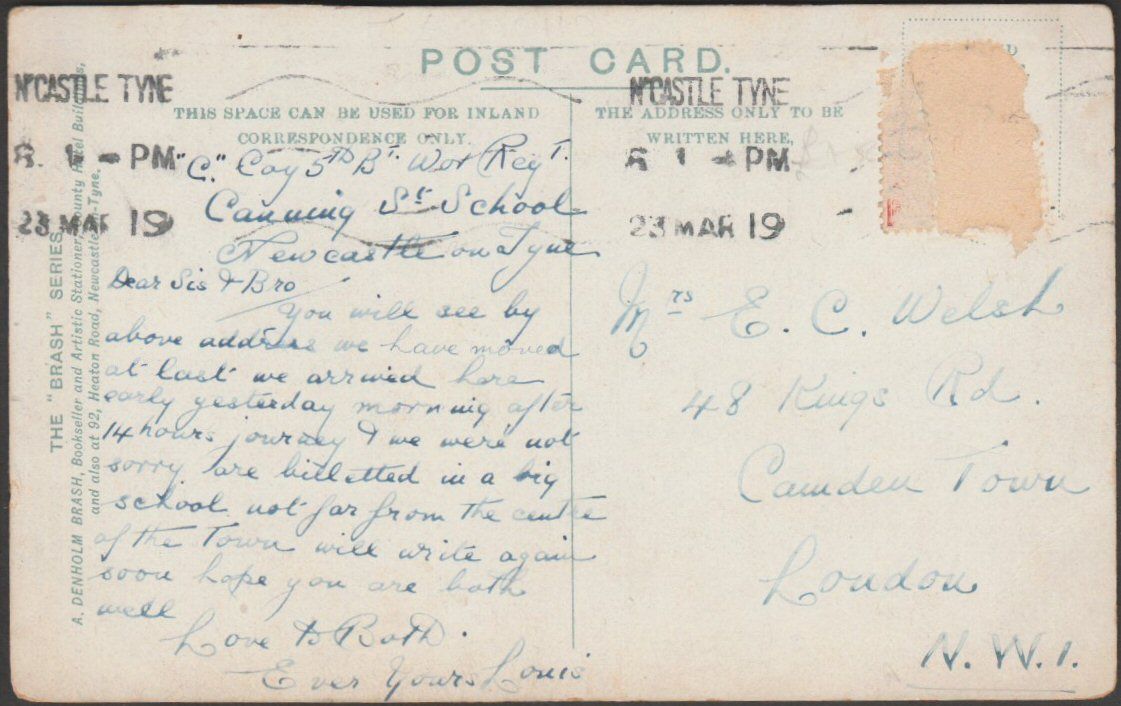 POST CARD.
N'CASTLE TYNE
PM
23 MAR 19
N'CASTLE TYNE
PM
23 MAR 19
THIS SPACE CAN BE USED FOR INLAND
CORRESPONDENCE ONLY.
THE ADDRESS ONLY TO BE
WRITTEN HERE,
"C." Coy 5TH BT. Wor Regt.
Canning St School
Newcastle on Tyne
Dear Sis & Bro
You will see by
above address we have moved
at last we arrived here
early yesterday morning after
14 hours journey & we were not
sorry are billetted in a big
school not far from the centre
of the Town will write again
soon hope you are both
well
Love to Both.
Ever Yours Louis
Mrs E. C. Welsh
48 Kings Rd.
Camden Town
London
N.W.1.
THE "BRASH" SERIES.
A. DENHOLM BRASH, Bookseller and Artistic Stationer, County Hotel Buildings,
and also at 92, Heaton Road, Newcastle-Tyne.